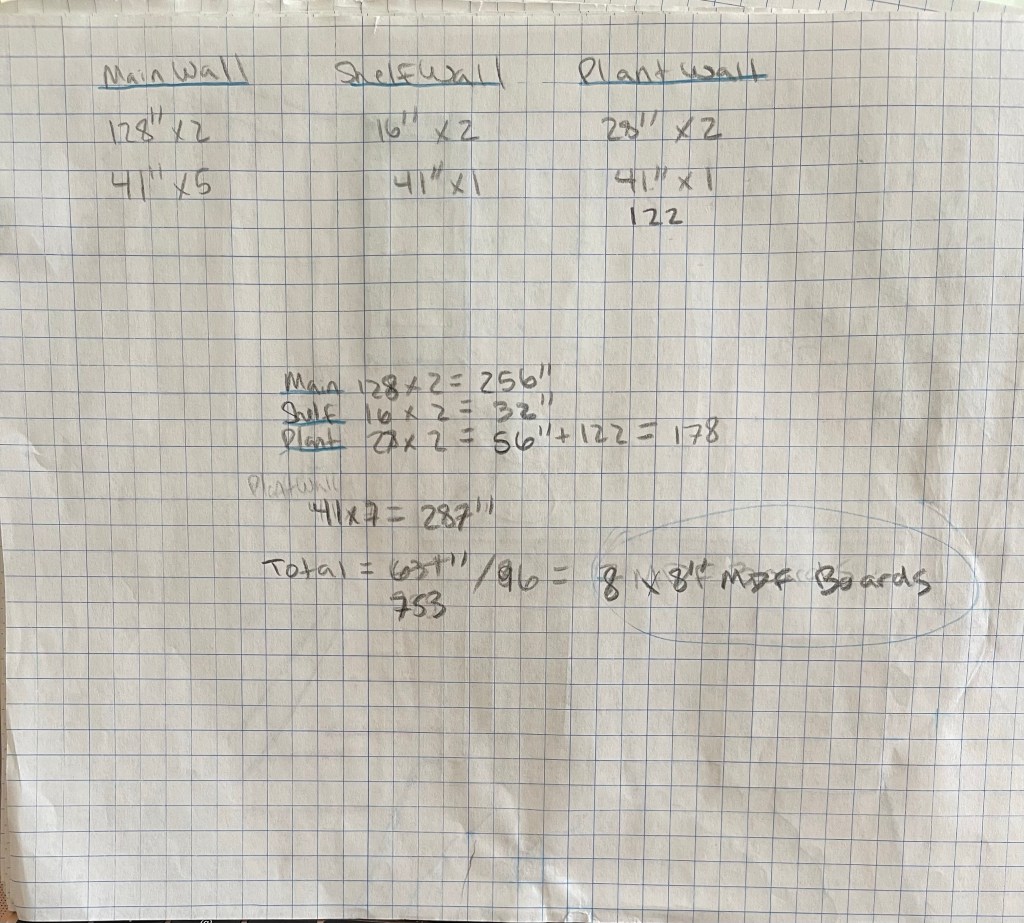 Main Wall Shelf Wall Plant Wall
128" x 2 16" x 2 28" x 2
41" x 5 41" x 1 41" x 1
122
Main 128 x 2 = 256"
Shelf 16 x 2 = 32"
Plant 28 x 2 = 56" + 122 = 178
Plant Wall
41 x 7 = 287"
Total = 631" / 96 = 8 x 8" MDF Boards
753